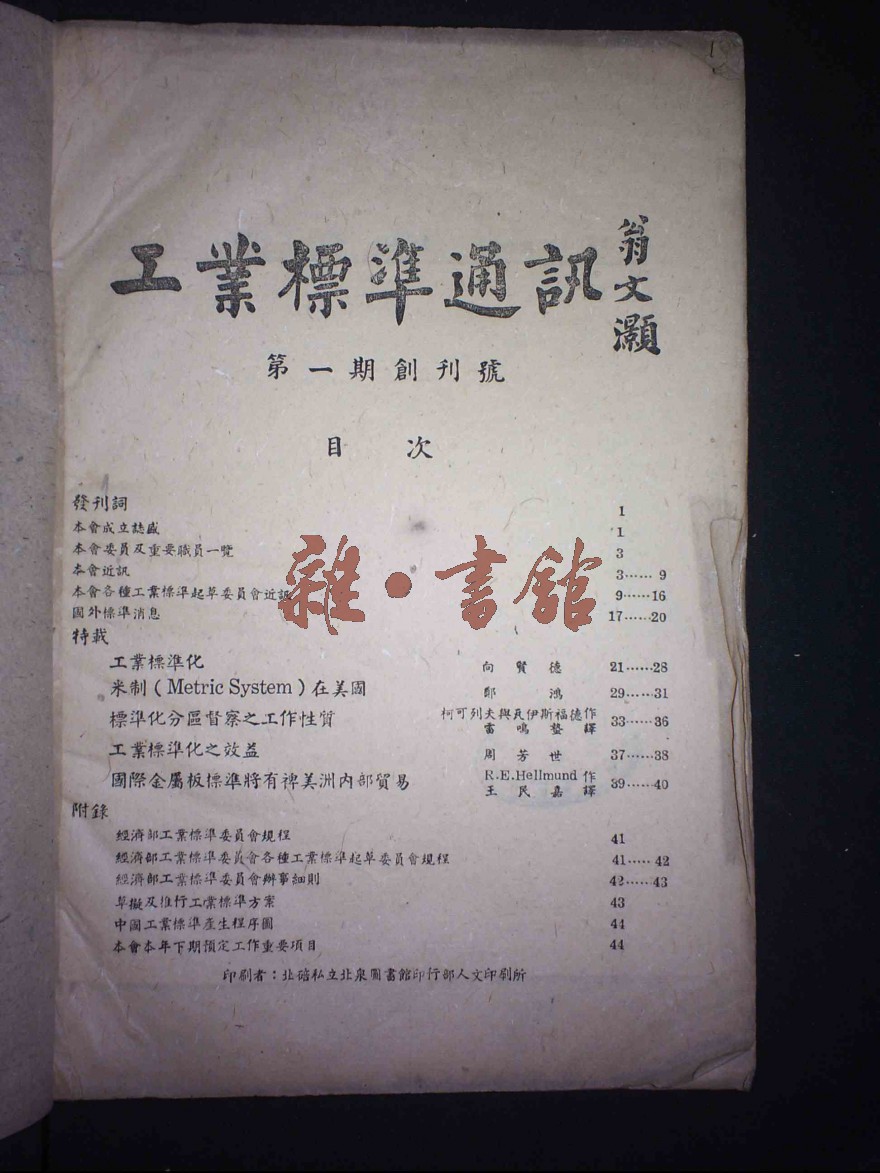 工業標準通訊
翁文灝
第一期創刊號
目 次
發刊詞 1
本會成立誌盛 1
本會委員及重要職員一覽 3
本會近訊 3……9
本會各種工業標準起草委員會近訊 9……16
國外標準消息 17……20
特載
工業標準化 向賢德 21……28
米制(Metric System)在美國 鄭鴻 29……31
標準化分區督察之工作性質 柯可列夫與瓦伊斯福德作 雷鳴蟄譯 33……36
工業標準化之效益 周芳世 37……38
國際金屬板標準將有裨美洲內部貿易 R.E.Hellmund作 王民嘉譯 39……40
附錄
經濟部工業標準委員會規程 41
經濟部工業標準委員會各種工業標準起草委員會規程 41……42
經濟部工業標準委員會辦事細則 42……43
草擬及推行工業標準方案 43
中國工業標準產生程序圖 44
本會本年下期預定工作重要項目 44
印刷者：北碚私立北泉圖書館印行部人文印刷所
雜·書館